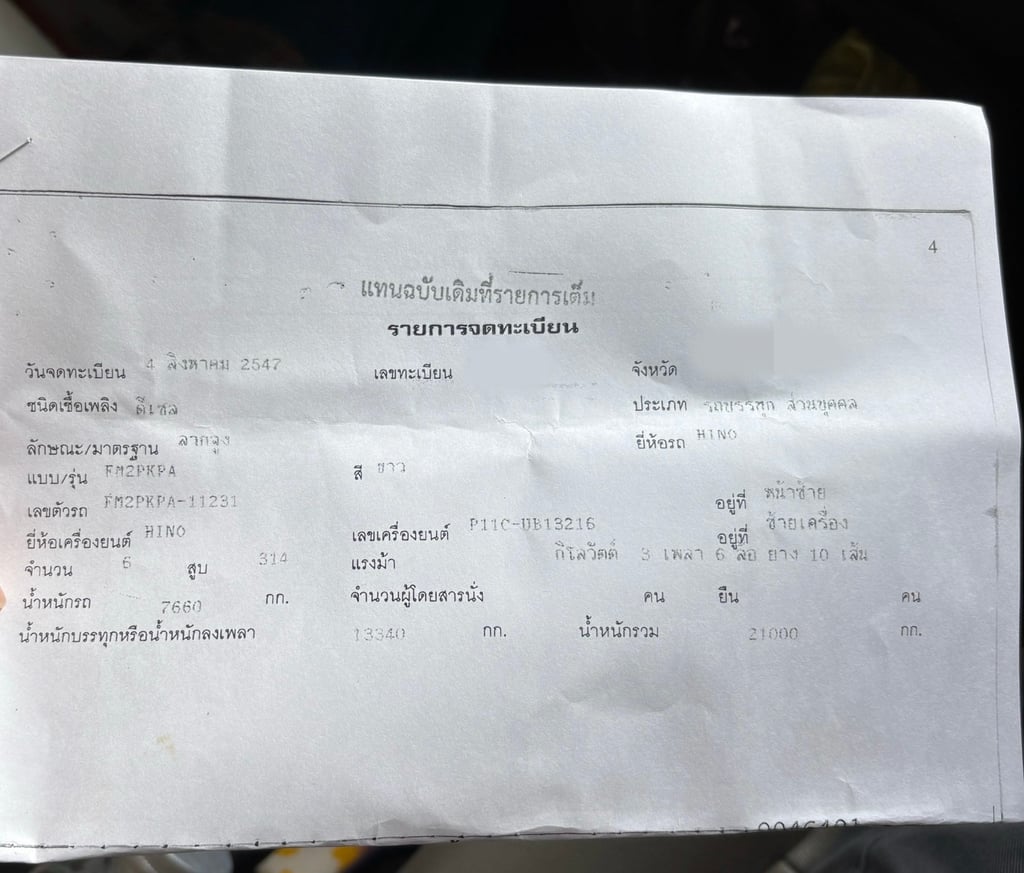 4
แทนฉบับเดิมที่รายการเต็ม
รายการจดทะเบียน
วันจดทะเบียน 4 สิงหาคม 2547 เลขทะเบียน จังหวัด
ชนิดเชื้อเพลิง ดีเซล ประเภท รถบรรทุก ส่วนบุคคล
ลักษณะ/มาตรฐาน ลากจูง ยี่ห้อรถ HINO
แบบ/รุ่น FM2PKPA สี ขาว
เลขตัวรถ FM2PKPA-11231 อยู่ที่ หน้าซ้าย
ยี่ห้อเครื่องยนต์ HINO เลขเครื่องยนต์ P11C-UB13216 อยู่ที่ ซ้ายเครื่อง
จำนวน 6 สูบ 314 แรงม้า กิโลวัตต์ 3 เพลา 6 ล้อ ยาง 10 เส้น
น้ำหนักรถ 7660 กก. จำนวนผู้โดยสารนั่ง คน ยืน คน
น้ำหนักบรรทุกหรือน้ำหนักลงเพลา 13340 กก. น้ำหนักรวม 21000 กก.